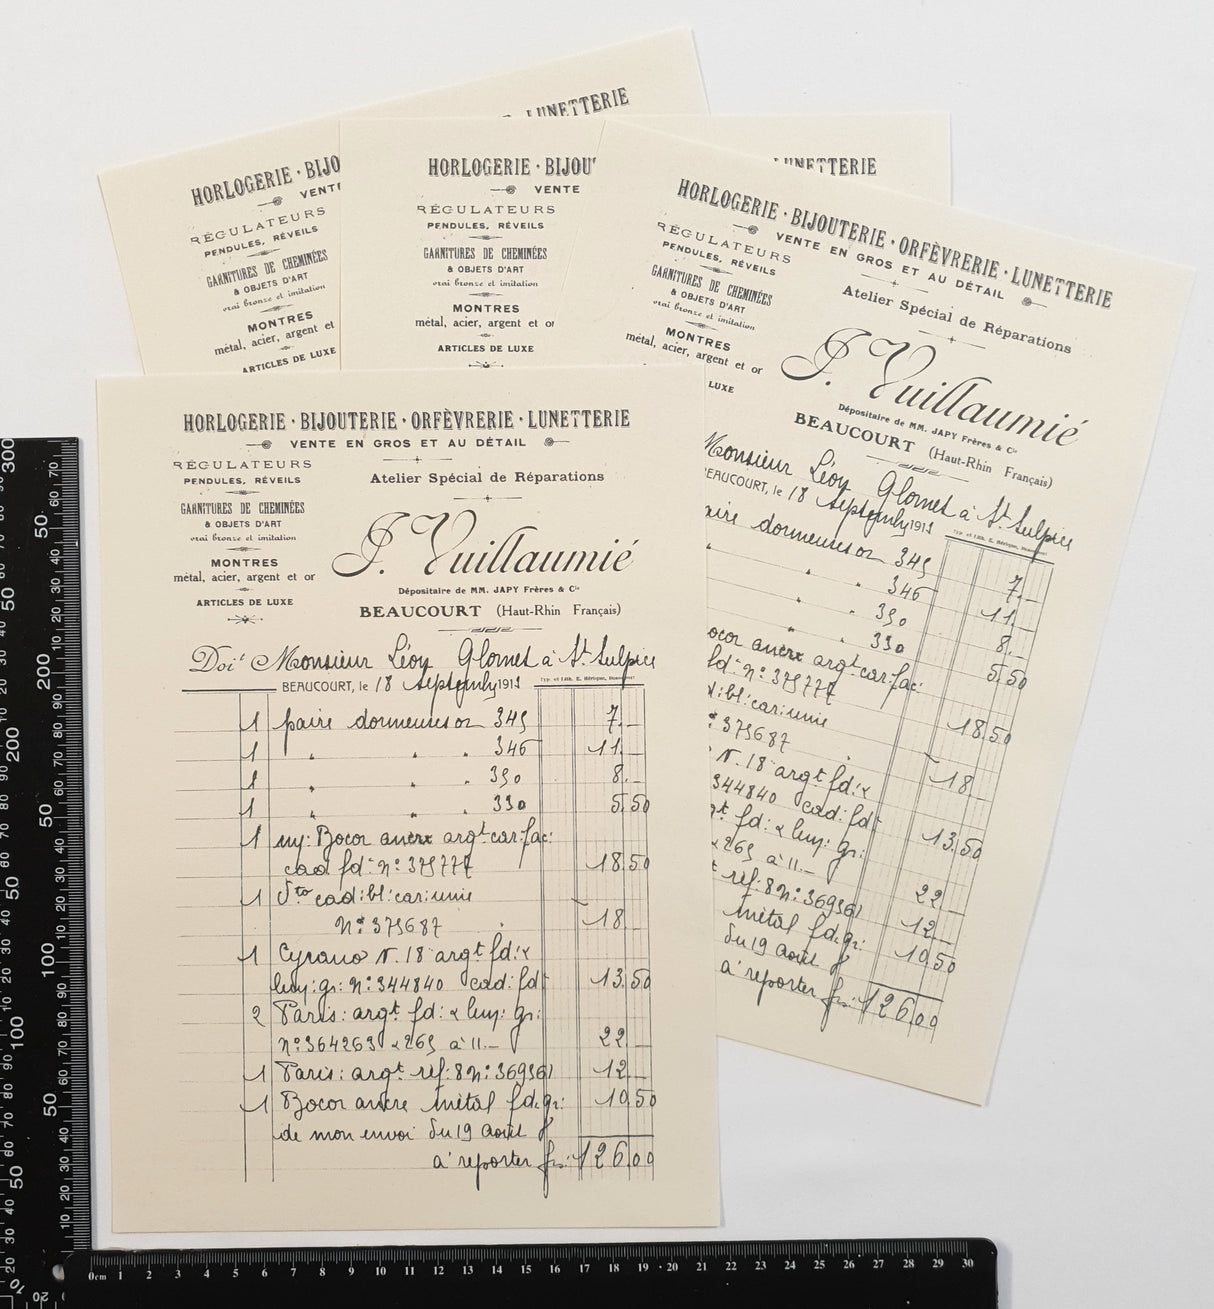 HORLOGERIE · BIJO
LUNETTERIE
VENT
RÉGULATEURS
PENDULES, RÉVEILS
GARNITURES DE CHEMINÉES
& OBJETS D'ART
vrai bronze et imitation
MONTRES
métal, acier, argent et
ARTICLES DE LUXE
HORLOGERIE · BIJOU
LUNETTERIE
VENTE
RÉGULATEURS
PENDULES, RÉVEILS
GARNITURES DE CHEMINÉES
& OBJETS D'ART
vrai bronze et imitation
MONTRES
métal, acier, argent et or
ARTICLES DE LUXE
HORLOGERIE · BIJOUTERIE · ORFÈVRERIE · LUNETTERIE
VENTE EN GROS ET AU DÉTAIL
RÉGULATEURS
PENDULES, RÉVEILS
GARNITURES DE CHEMINÉES
& OBJETS D'ART
vrai bronze et imitation
MONTRES
métal, acier, argent et or
LUXE
Atelier Spécial de Réparations
J. Vuillaumié
Dépositaire de MM. JAPY Frères & Cie
BEAUCOURT (Haut-Rhin Français)
Monsieur Léon Glornet à St. Sulpice
BEAUCOURT, le 18 Septembre 1911
paire dormeuses or 345 7.—
346 11.—
350 8.—
330 5.50
Bocor ancre argt. car. fac:
fd: n: 375777 18.50
d: bl: car: unie
375687 18
N. 18 argt. fd: &
344840 cad: fdt 13.50
argt. fd: & luy: gr:
& 265 à 11.— 22
ref: 8 n: 369561 12
métal fd. gr: 10.50
du 19 août
à reporter frs: 126.00
HORLOGERIE · BIJOUTERIE · ORFÈVRERIE · LUNETTERIE
VENTE EN GROS ET AU DÉTAIL
RÉGULATEURS
PENDULES, RÉVEILS
GARNITURES DE CHEMINÉES
& OBJETS D'ART
vrai bronze et imitation
MONTRES
métal, acier, argent et or
ARTICLES DE LUXE
Atelier Spécial de Réparations
J. Vuillaumié
Dépositaire de MM. JAPY Frères & Cie
BEAUCOURT (Haut-Rhin Français)
Doit Monsieur Léon Glornet à St. Sulpice
BEAUCOURT, le 18 Septembre 1911
1 paire dormeuses or 345 7.—
1 " " " 346 11.—
1 " " " 350 8.—
1 " " " 330 5.50
1 Bocor ancre argt. car. fac:
cad fd: n: 375777 18.50
1 dto cad: bl: car: unie
N: 375687 18
1 Cyrano N. 18 argt. fd: &
luy: gr: n: 344840 cad: fdt 13.50
2 Paris: argt. fd: & luy: gr:
n: 364263 & 265 à 11.— 22
1 Paris: argt. ref: 8 n: 369561 12
1 Bocor ancre métal fd. gr: 10.50
de mon envoi du 19 août
à reporter frs: 126.00
0cm 1 2 3 4 5 6 7 8 9 10 11 12 13 14 15 16 17 18 19 20 21 22 23 24 25 26 27 28 29 30